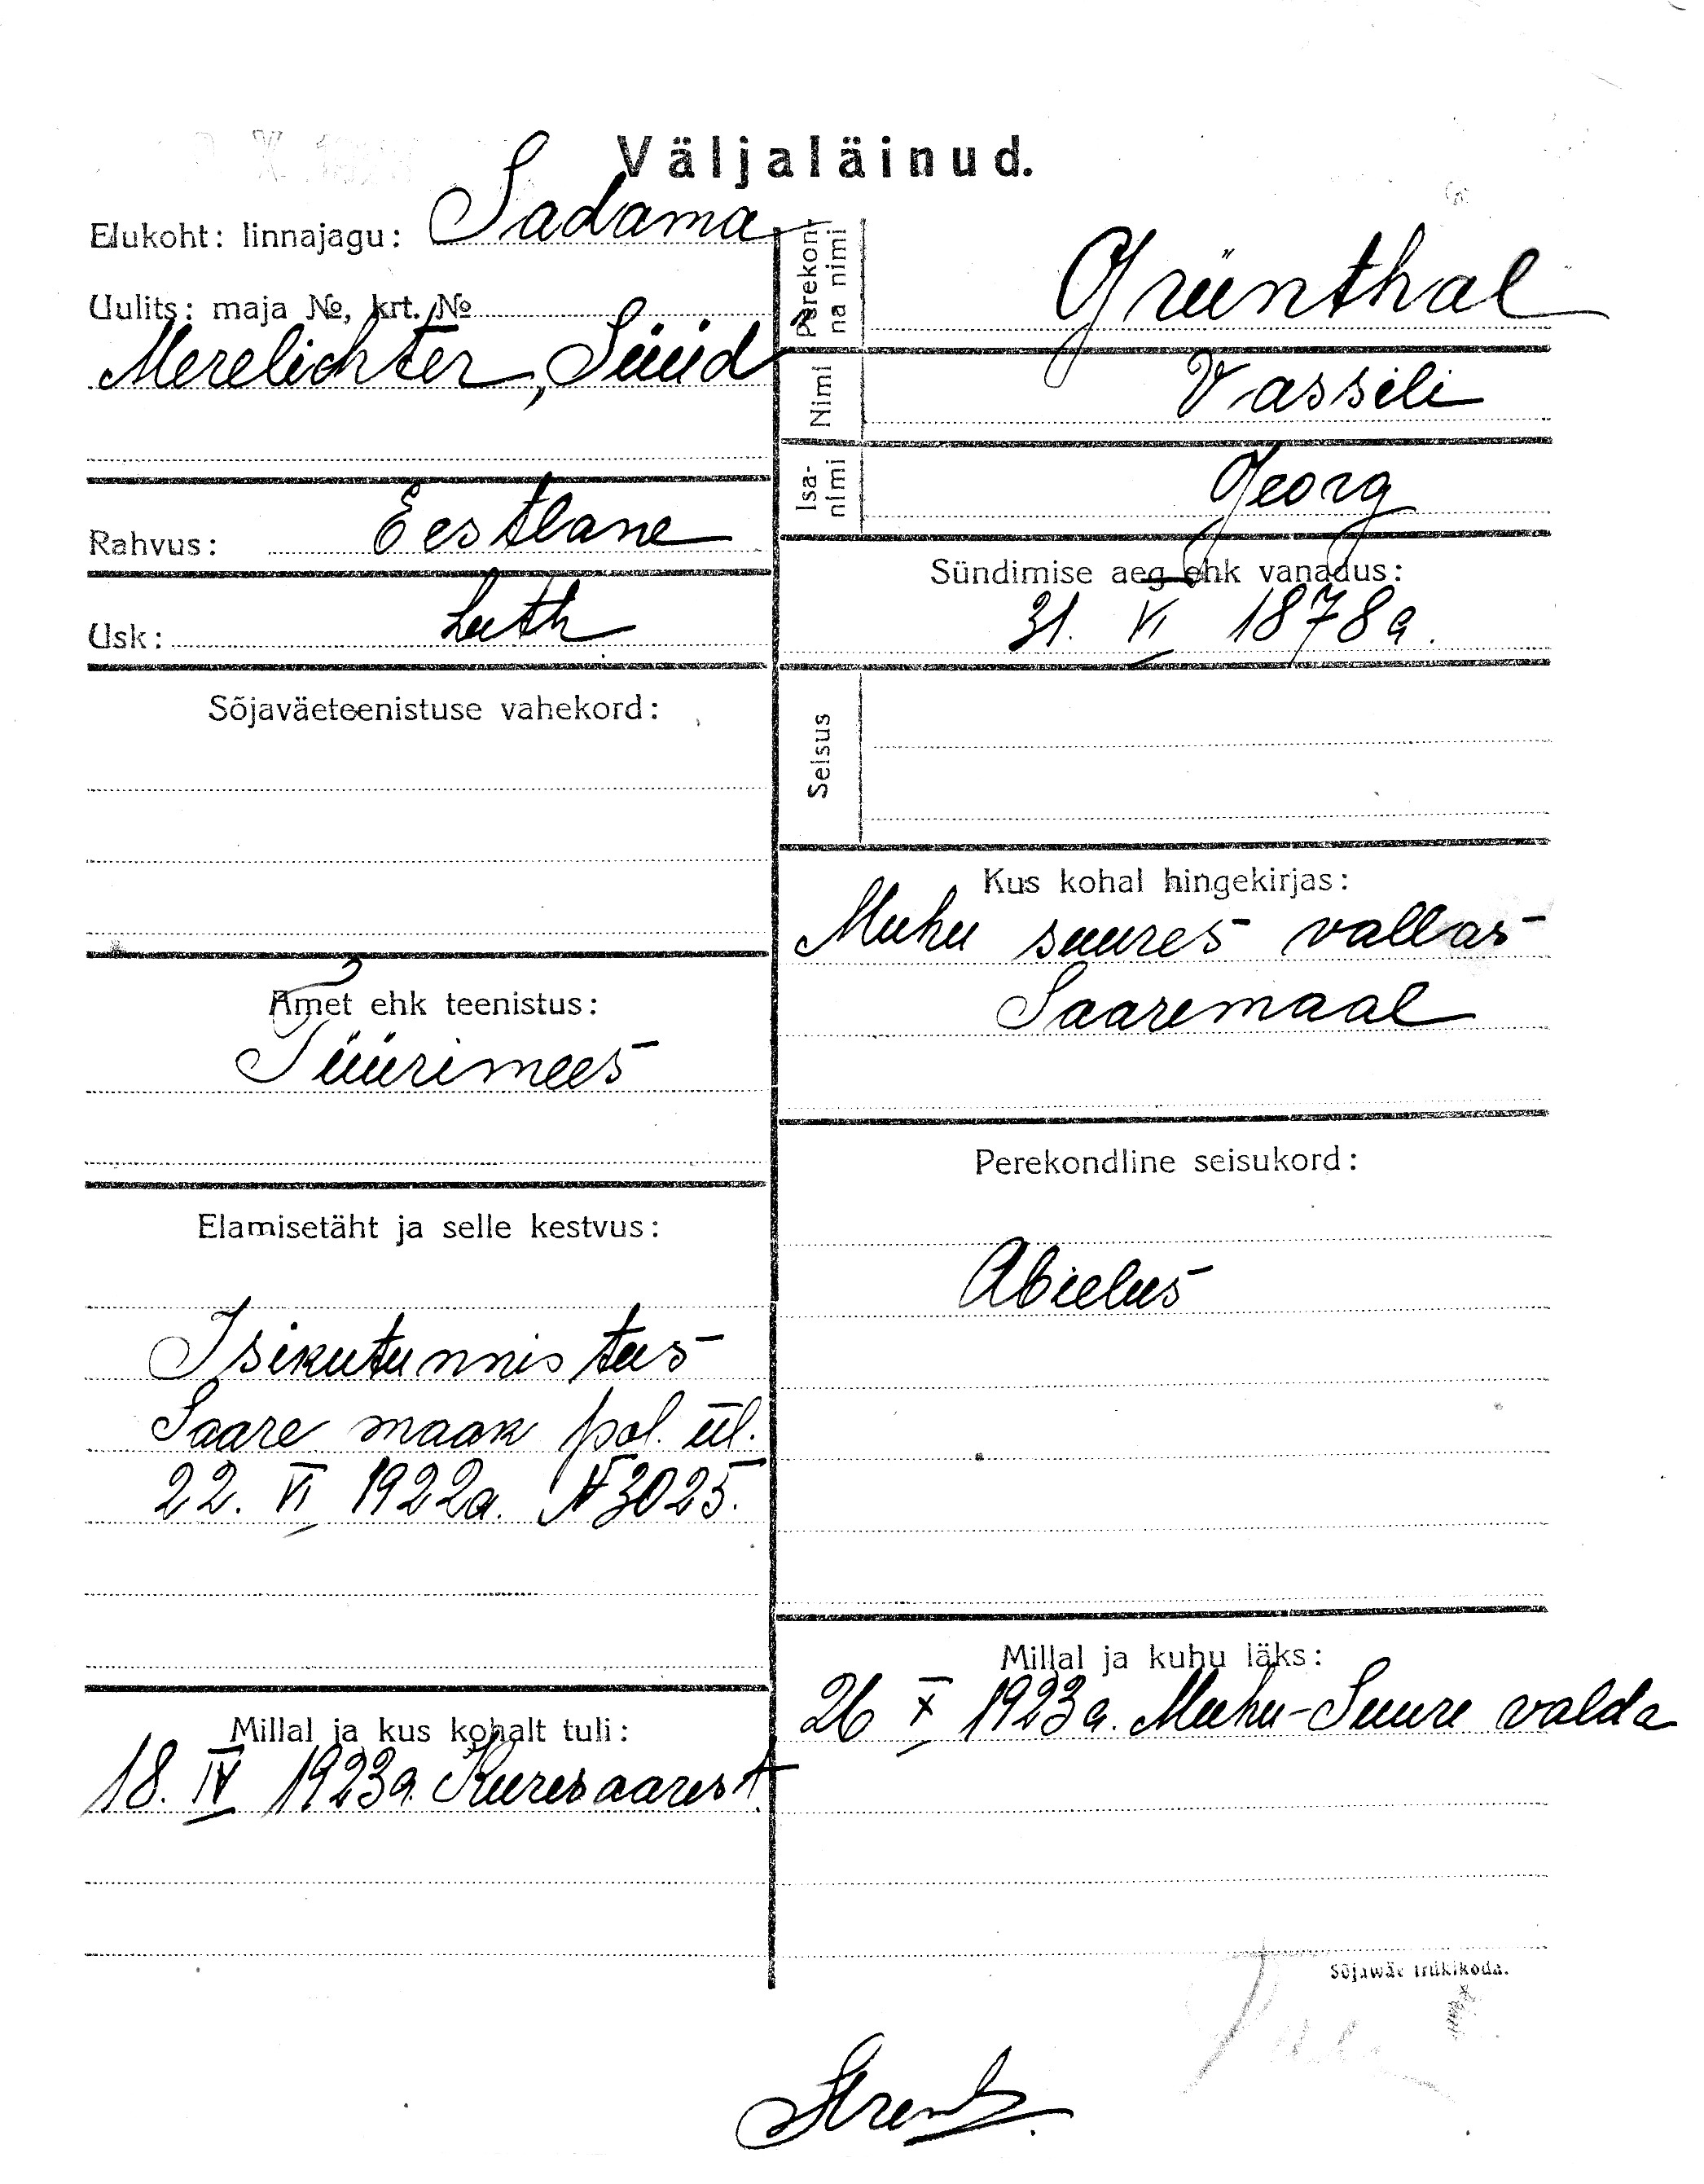 Väljaläinud.
Elukoht: linnajagu: Sadama
Uulits: maja №, krt. №
Merelichter, Süüd
Rahvus: Eestlane
Usk: Luth
Sõjaväeteenistuse vahekord:
Amet ehk teenistus:
Tüürimees
Elamisetäht ja selle kestvus:
Isikutunnistus
Saare maak pol. ül.
22. VI 1922a. N 3025.
Millal ja kus kohalt tuli:
18. IV 1923a. Kuresaarest.
Perekon-
na nimi
Grünthal
Nimi Vassili
Isa-
nimi
Georg
Sündimise aeg ehk vanadus:
31. VI 1878a.
Seisus
Kus kohal hingekirjas:
Muhu suures vallas
Saaremaal
Perekondline seisukord:
Abielus
Millal ja kuhu läks:
26 X 1923a. Muhu-Suure valda
Sõjawäe trükikoda.